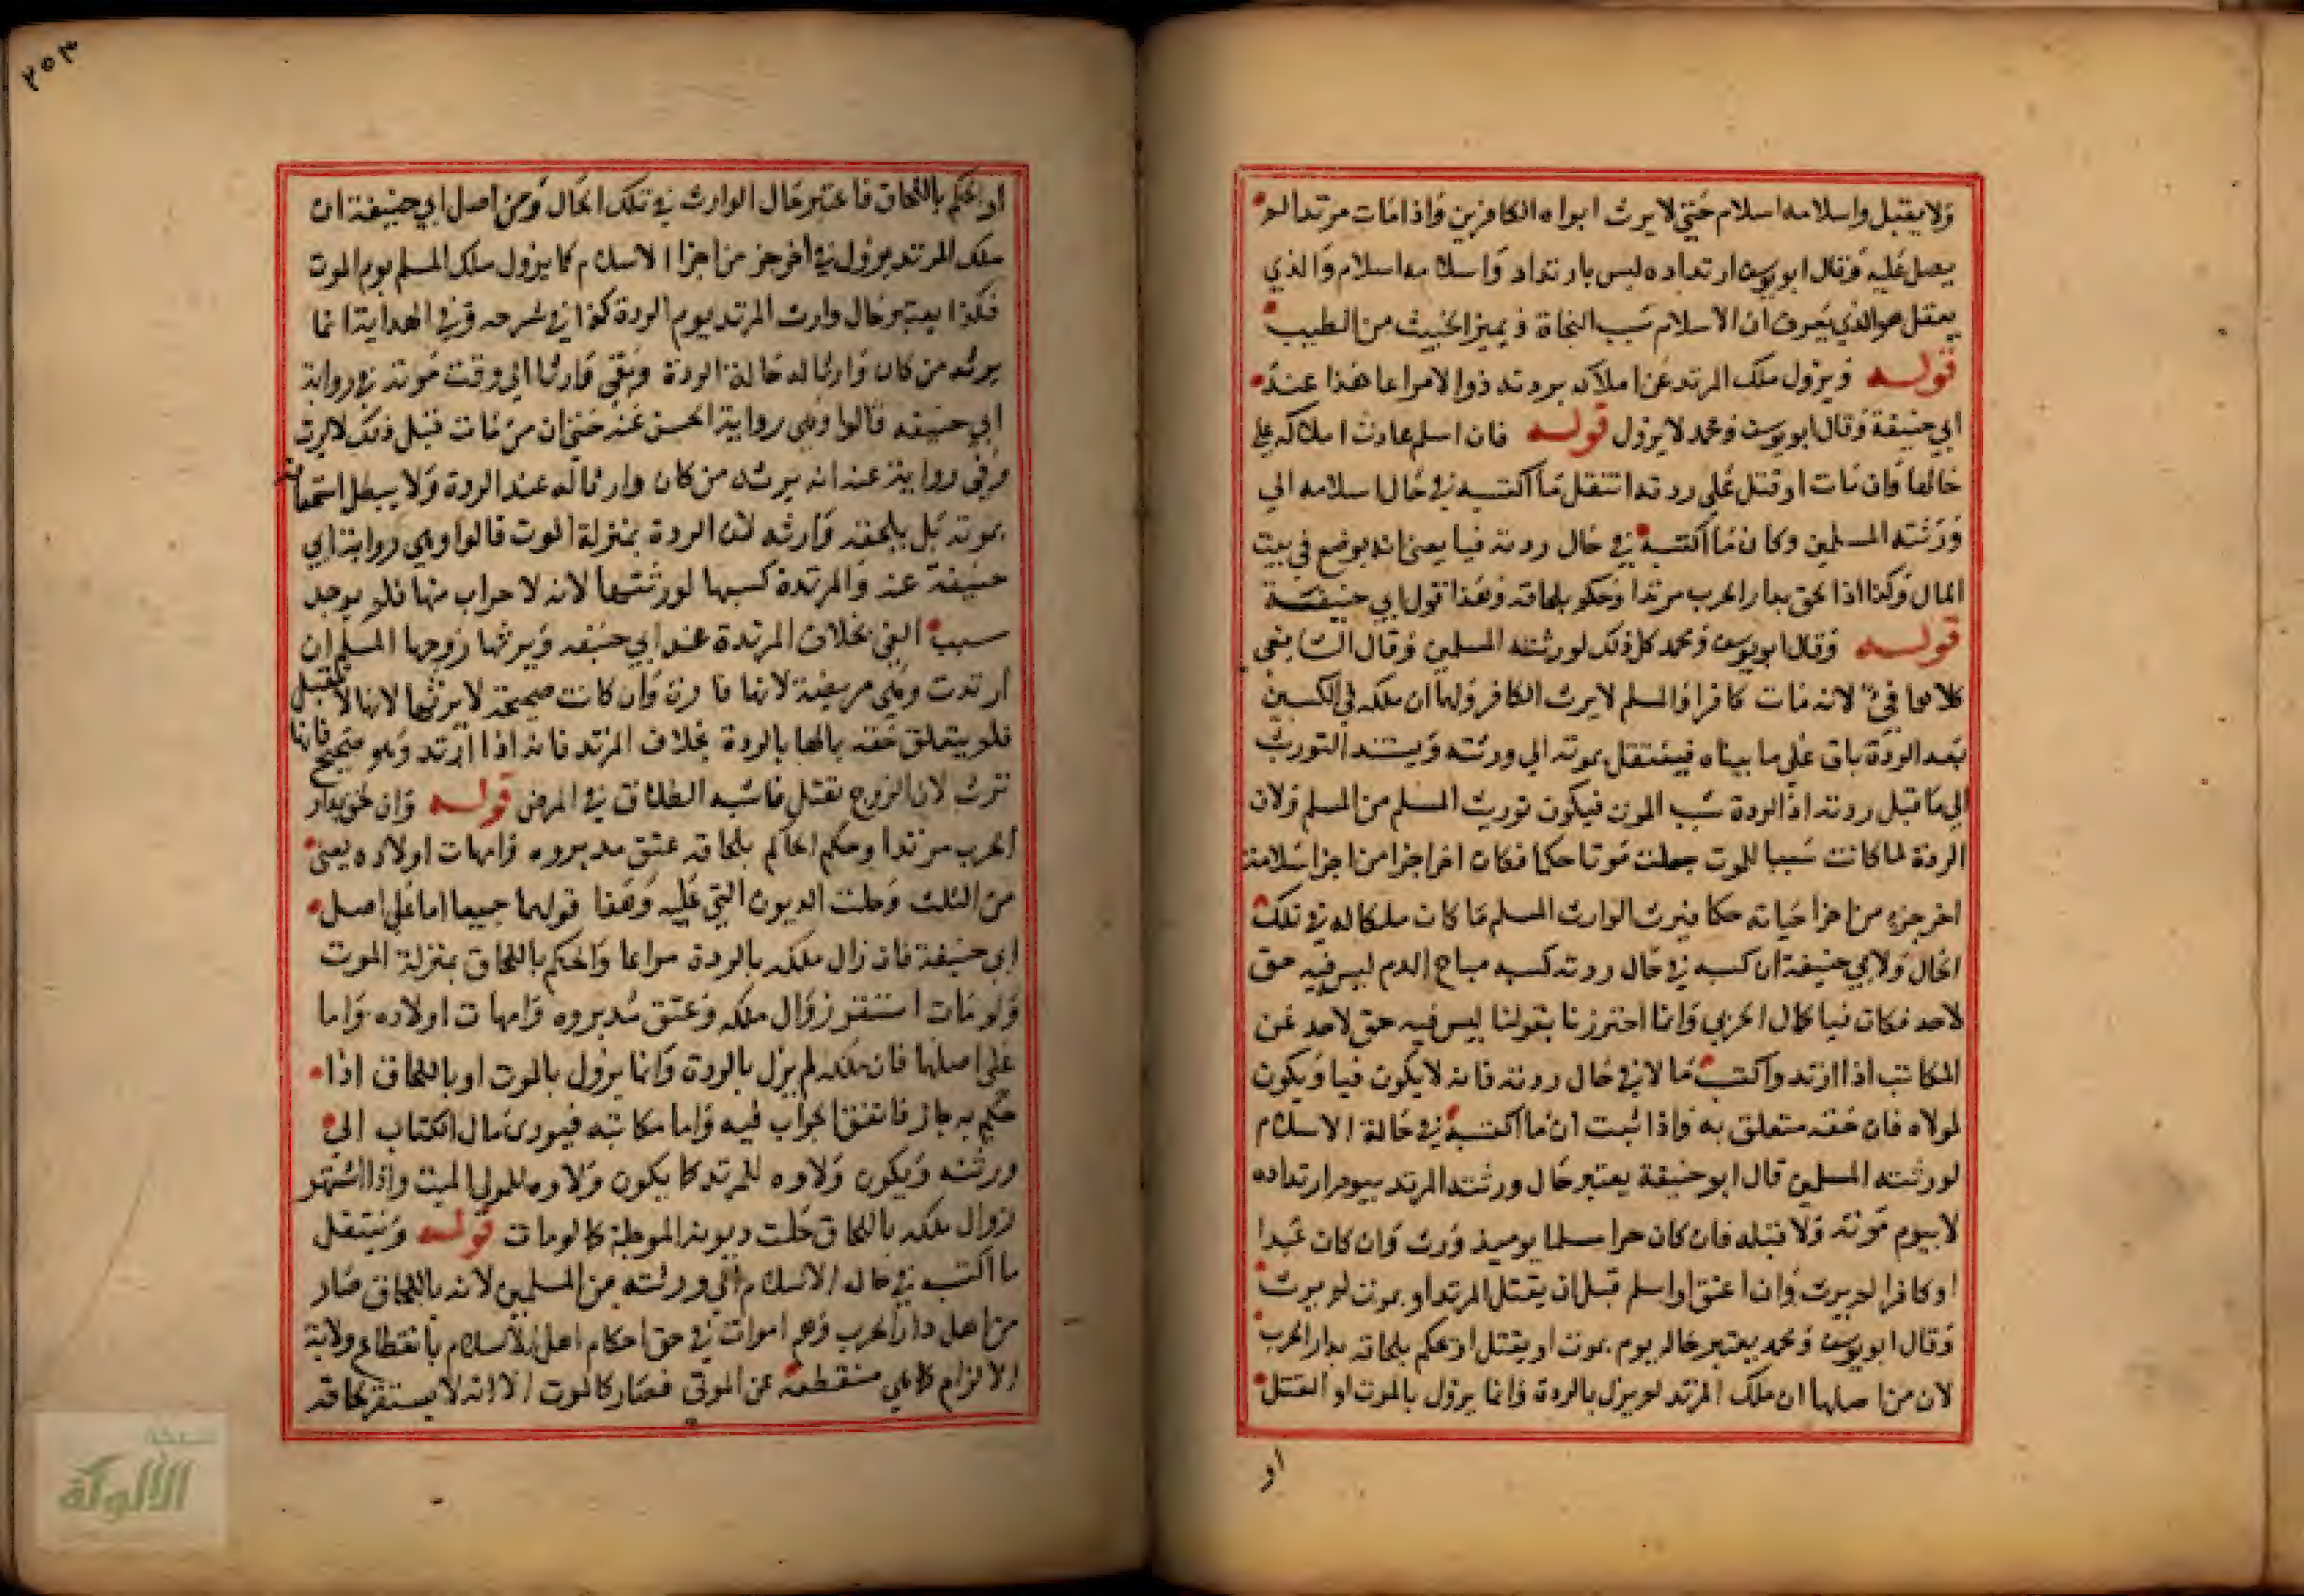 ولا يقبل واسلامه اسلام حتى لا يرث ابواه الكافرين واذا مات مرتدا لو
يصل عليه وقال ابو يوسف ارتداده ليس بارتداد واسلامه اسلام والذي
يعقل هو الذي يعرف ان الاسلام سبب النجاة ويميز الخبيث من الطيب
قوله ويزول ملك المرتد عن املاكه بردته زوالا مراعا هذا عند
ابي حنيفة وقال ابو يوسف ومحمد لا يزول قوله فان اسلم عادت املاكه على
حالها وان مات او قتل على ردته انتقل ما اكتسبه في حال اسلامه الى
ورثته المسلمين وكان ما اكتسبه في حال ردته فيا يعني انه يوضع في بيت
المال وكذا اذا لحق بدار الحرب مرتدا وحكم بلحاقه وهذا قول ابي حنيفة
قوله وقال ابو يوسف ومحمد كل ذلك لورثته المسلمين وقال الشافعي
كلاهما فئ لانه مات كافرا والمسلم لا يرث الكافر ولهما ان ملكه في الكسبين
بعد الردة باق على ما بيناه فينتقل بموته الى ورثته ويستند التوريث
الى ما قبل ردته اذ الردة سبب الموت فيكون توريث المسلم من المسلم ولان
الردة لما كانت سببا للموت جعلت موتا حكما فكان اخر اجزا من اجزا سلامته
اخر جزء من اجزا حياته حكما فيرث الوارث المسلم ما كان ملكا له في تلك
الحال ولابي حنيفة ان كسبه في حال ردته كسب مباح الدم ليس فيه حق
لاحد فكان فيا كمال الحربي وانما احترزنا بقولنا ليس فيه حق لاحد عن
المكاتب اذا ارتد واكتسب مالا في حال ردته فانه لا يكون فيا ويكون
لمولاه فان حقه متعلق به واذا ثبت ان ما اكتسبه في حالة الاسلام
لورثته المسلمين قال ابو حنيفة يعتبر حال ورثة المرتد بيوم ارتداده
لا بيوم موته ولا قبله فان كان حرا مسلما يوميذ ورث وان كان عبدا
او كافرا لم يرث وان اعتق او اسلم قبل ان يقتل المرتد او يموت لم يرث
وقال ابو يوسف ومحمد يعتبر حاله يوم يموت او يقتل او يحكم بلحاقه بدار الحرب
لان من اصلهما ان ملك المرتد لم يزل بالردة وانما يزول بالموت او القتل
او
٢٥٣
او الحكم باللحاق فاعتبر حال الوارث في تلك الحال ومن اصل ابي حنيفة ان
ملك المرتد يزول في اخر جز من اجزا الاسلام كما يزول ملك المسلم يوم الموت
فكذا يعتبر حال وارث المرتد يوم الردة كذا في شرحه وفي الهداية انما
يرثه من كان وارثا له حالة الردة وبقي وارثا الى وقت موته في رواية
ابي حنيفه قالوا وهي رواية الحسن عنه حتى ان من مات قبل ذلك لا يرث
وفي رواية عنه انه يرثه من كان وارثا له عند الردة ولا يبطل استحقاقه
بموته بل يخلفه وارثه لان الردة بمنزلة الموت قالوا وهي رواية ابي
حنيفة عنه والمرتدة كسبها لورثتها لانه لا حراب منها فلم يوجد
سبب الفئ بخلاف المرتدة عند ابي حنيفه ويرثها زوجها المسلم ان
ارتدت وهي مريضة لانها فارة وان كانت صحيحة لا يرثها لانها لا تقتل
فلم يتعلق حقه بمالها بالردة بخلاف المرتد فانه اذا ارتد وهو صحيح فانها
ترث لان الزوج يقتل فاشبه الطلاق في المرض قوله وان لحق بدار
الحرب مرتدا وحكم الحاكم بلحاقه عتق مدبروه وامهات اولاده يعني
من الثلث وحلت الديون التي عليه وهذا قولهما جميعا اما على اصل
ابي حنيفة فان زال ملكه بالردة مراعا والحكم باللحاق بمنزلة الموت
ولو مات استقر زوال ملكه وعتق مدبروه وامهات اولاده واما
على اصلهما فان ملكه لم يزل بالردة وانما يزول بالموت او باللحاق اذا
حكم به جاز فاتفق الجواب فيه واما مكاتبه فيودى مال الكتاب الى
ورثته ويكون ولاوه للمرتد كما يكون ولاوه للمولى الميت واذا اشتهر
زوال ملكه باللحاق حلت ديونه الموجلة كما لو مات قوله وينتقل
ما اكتسبه في حال الاسلام الى ورثته من المسلمين لانه باللحاق صار
من اهل دار الحرب وهم اموات في حق احكام اهل الاسلام بانقطاع ولاية
الالزام كما هي منقطعة عن الموتى فصار كالموت الا انه لا يستقر لحاقه
شبكة
الألوكة